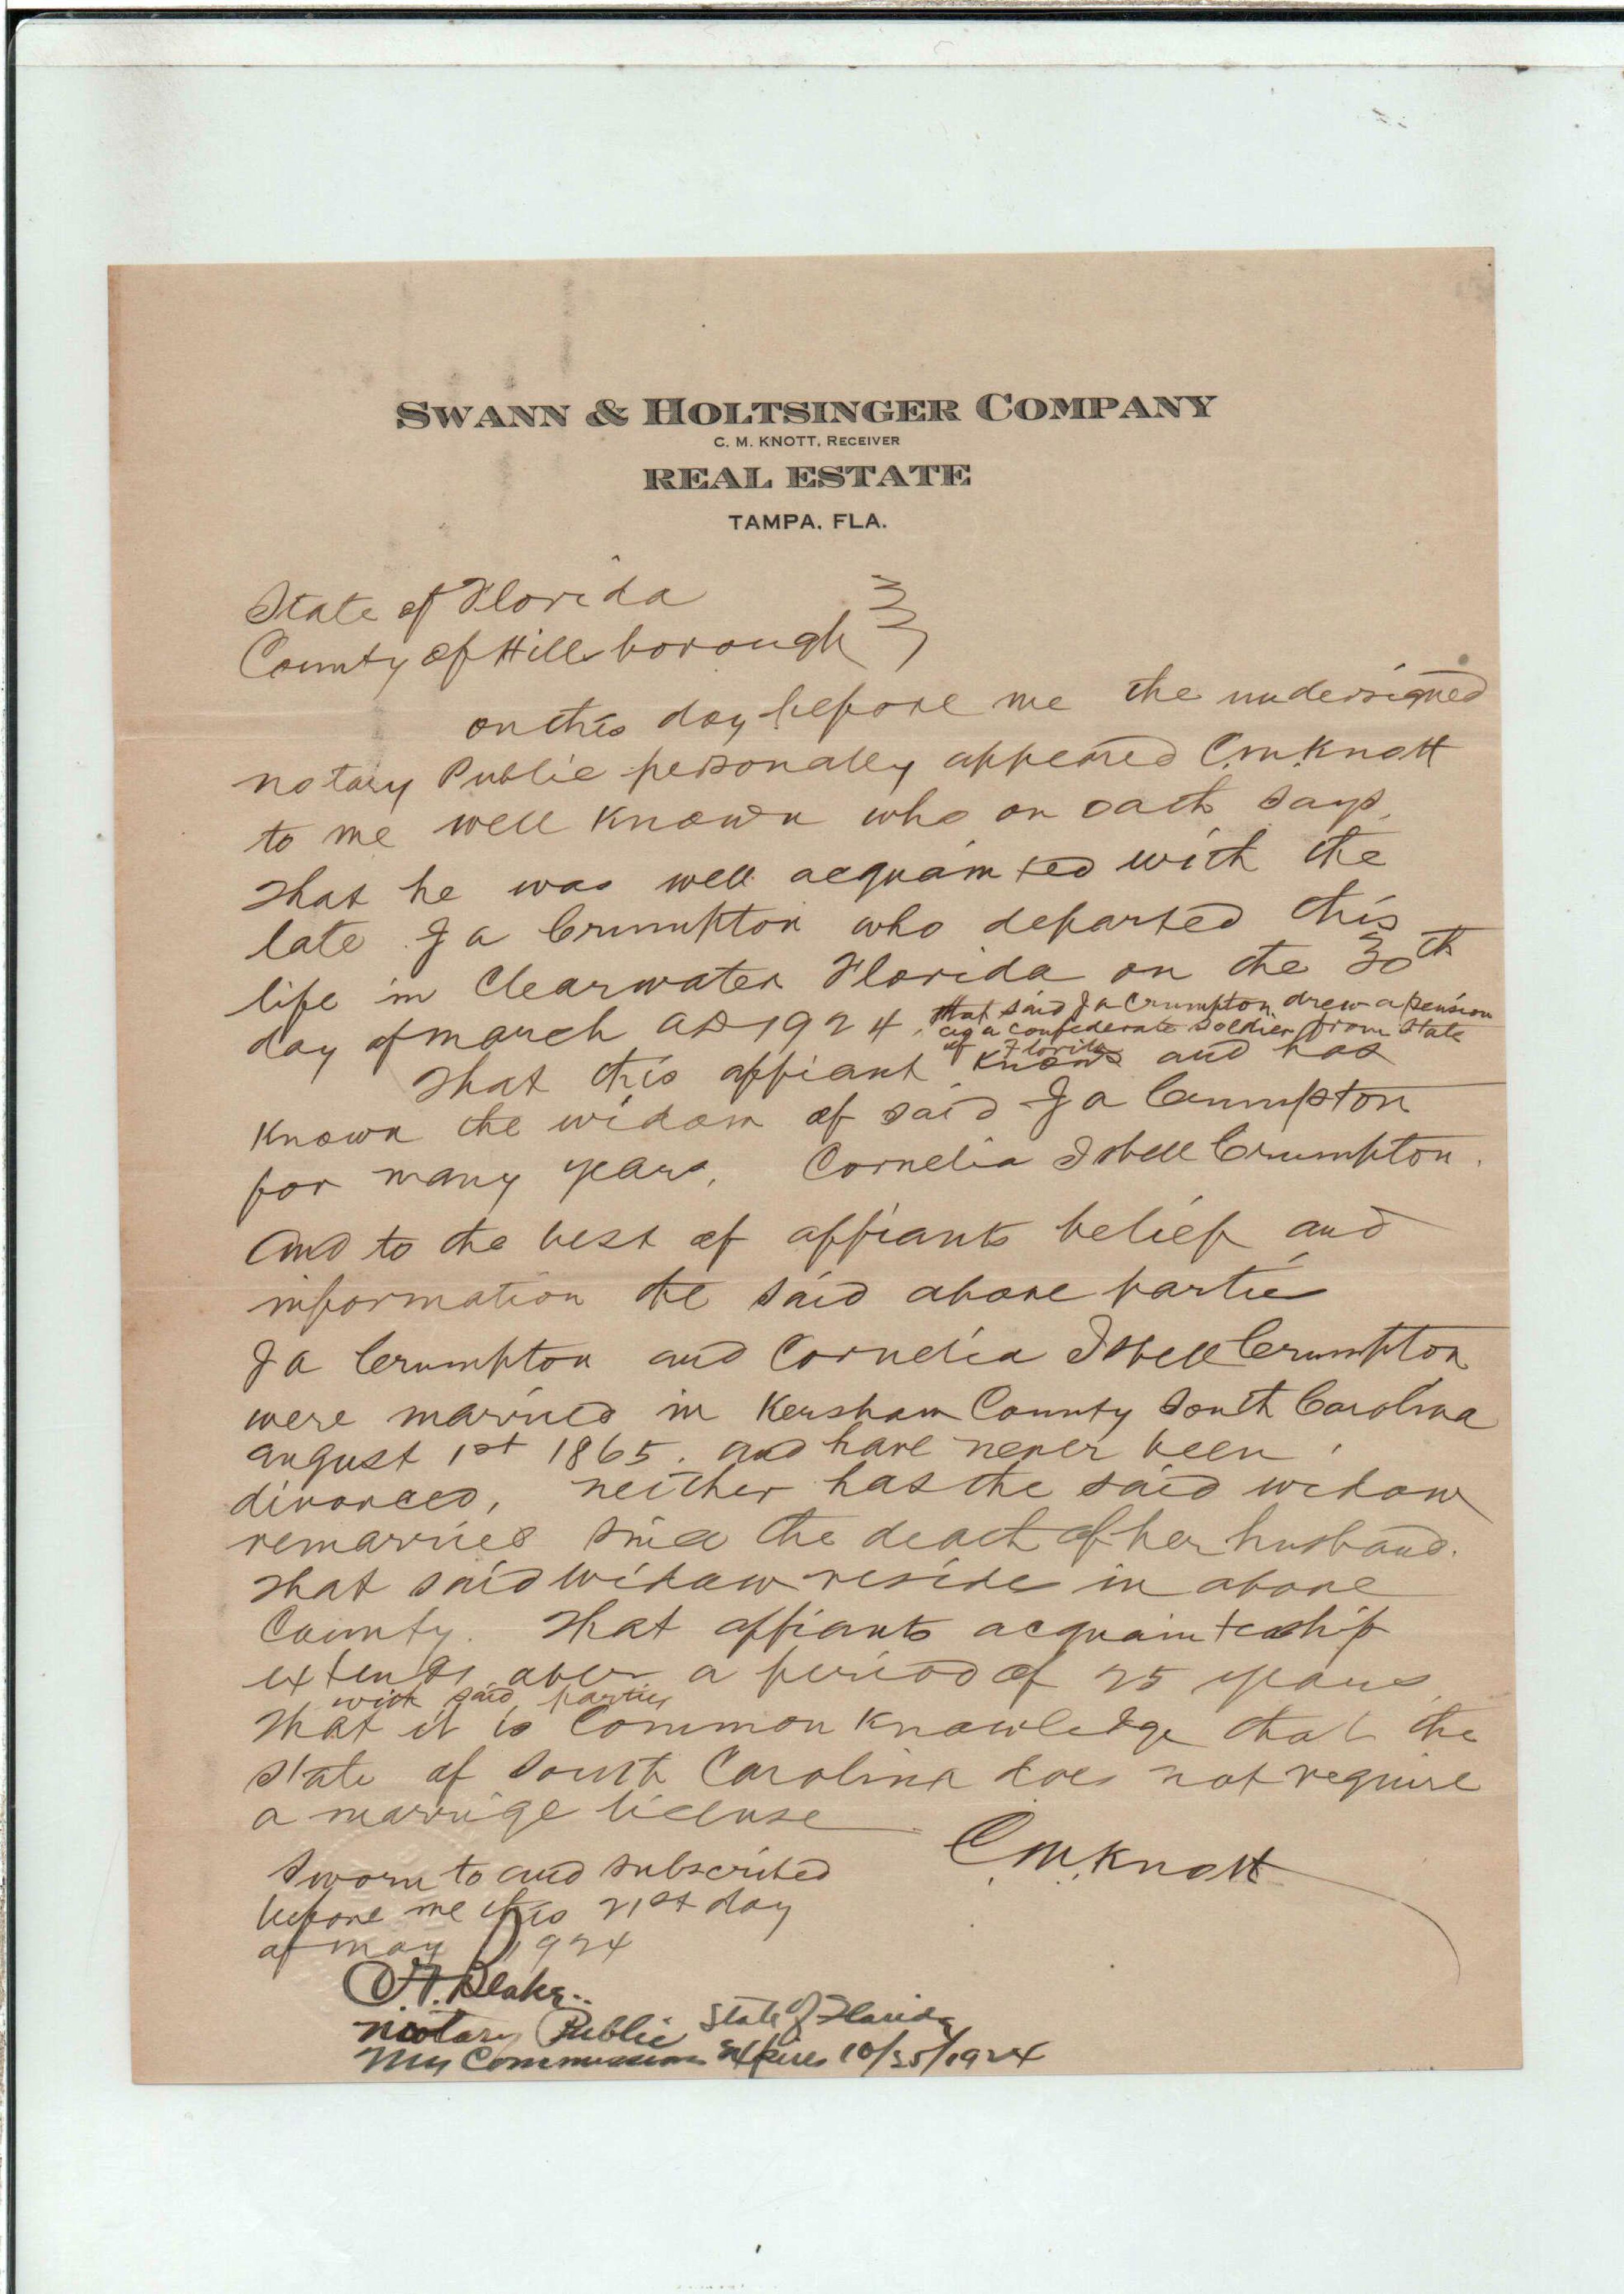 SWANN & HOLTSINGER COMPANY
C. M. KNOTT, RECEIVER
REAL ESTATE
TAMPA, FLA.
State of Florida
County of Hillsborough
on this day before me the undersigned
notary Public personally appeared C.M. Knott
to me well known who on oath says,
that he was well acquainted with the
late J a Crumpton who departed this
life in Clearwater Florida on the 30th
day of march AD 1924, that said J a Crumpton drew a pension
as a confederate soldier from State
of Florida
that this affiant knows and has
known the widow of said J a Crumpton
for many years, Cornelia Isbell Crumpton.
and to the best of affiants belief and
information the said above parties
J a Crumpton and Cornelia Isbell Crumpton
were married in Kershaw County South Carolina
august 1st 1865. and have never been
divorced, neither has the said widow
remarried since the death of her husband.
that said widow reside in above
County. that affiants acquainteaship
extends over a period of 25 years
with said parties
that it is common knowledge that the
state of South Carolina does not require
a marrige license
C.M. Knott
Sworn to and subscribed
before me this 21st day
of may 1924
Blake
Notary Public State of Florida
My Commission Expires 10/25/1924